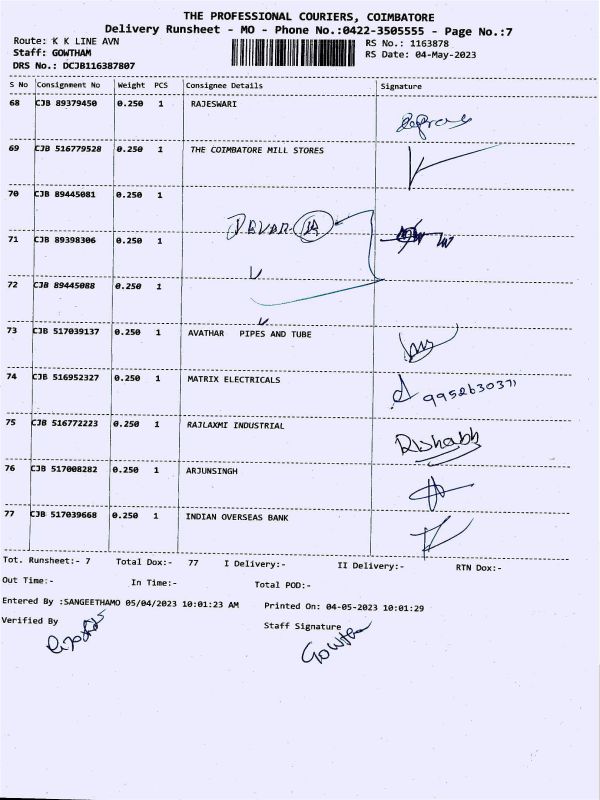 THE PROFESSIONAL COURIERS, COIMBATORE
Delivery Runsheet - MO - Phone No.:0422-3505555 - Page No.:7
Route: K K LINE AVN RS No.: 1163878
Staff: GOWTHAM RS Date: 04-May-2023
DRS No.: DCJB116387807
S No Consignment No Weight PCS Consignee Details Signature
68 CJB 89379450 0.250 1 RAJESWARI
69 CJB 516779528 0.250 1 THE COIMBATORE MILL STORES
70 CJB 89445081 0.250 1
71 CJB 89398306 0.250 1
72 CJB 89445088 0.250 1
73 CJB 517039137 0.250 1 AVATHAR PIPES AND TUBE
74 CJB 516952327 0.250 1 MATRIX ELECTRICALS 9952630371
75 CJB 516772223 0.250 1 RAJLAXMI INDUSTRIAL Rishabh
76 CJB 517008282 0.250 1 ARJUNSINGH
77 CJB 517039668 0.250 1 INDIAN OVERSEAS BANK
Tot. Runsheet:- 7 Total Dox:- 77 I Delivery:- II Delivery:- RTN Dox:-
Out Time:- In Time:- Total POD:-
Entered By :SANGEETHAMO 05/04/2023 10:01:23 AM Printed On: 04-05-2023 10:01:29
Verified By Staff Signature
Gowtham